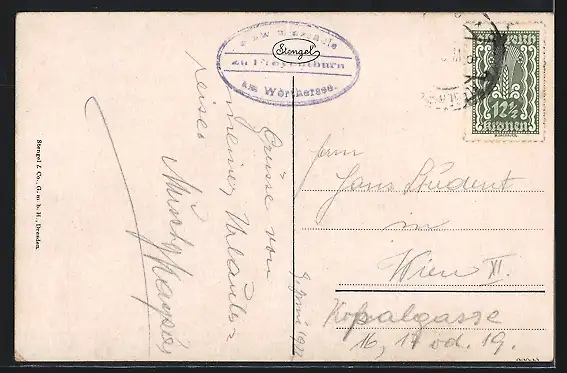 Stengel
zu Freyenthurn
am Wörthersee.
12½
Kronen
Grüsse von
meiner Urlaubs
reise
9. Juni 1922
Herrn
Hans Student
in
Wien XI.
Kopalgasse
16, 17 od. 19.
Stengel & Co., G. m. b. H., Dresden.